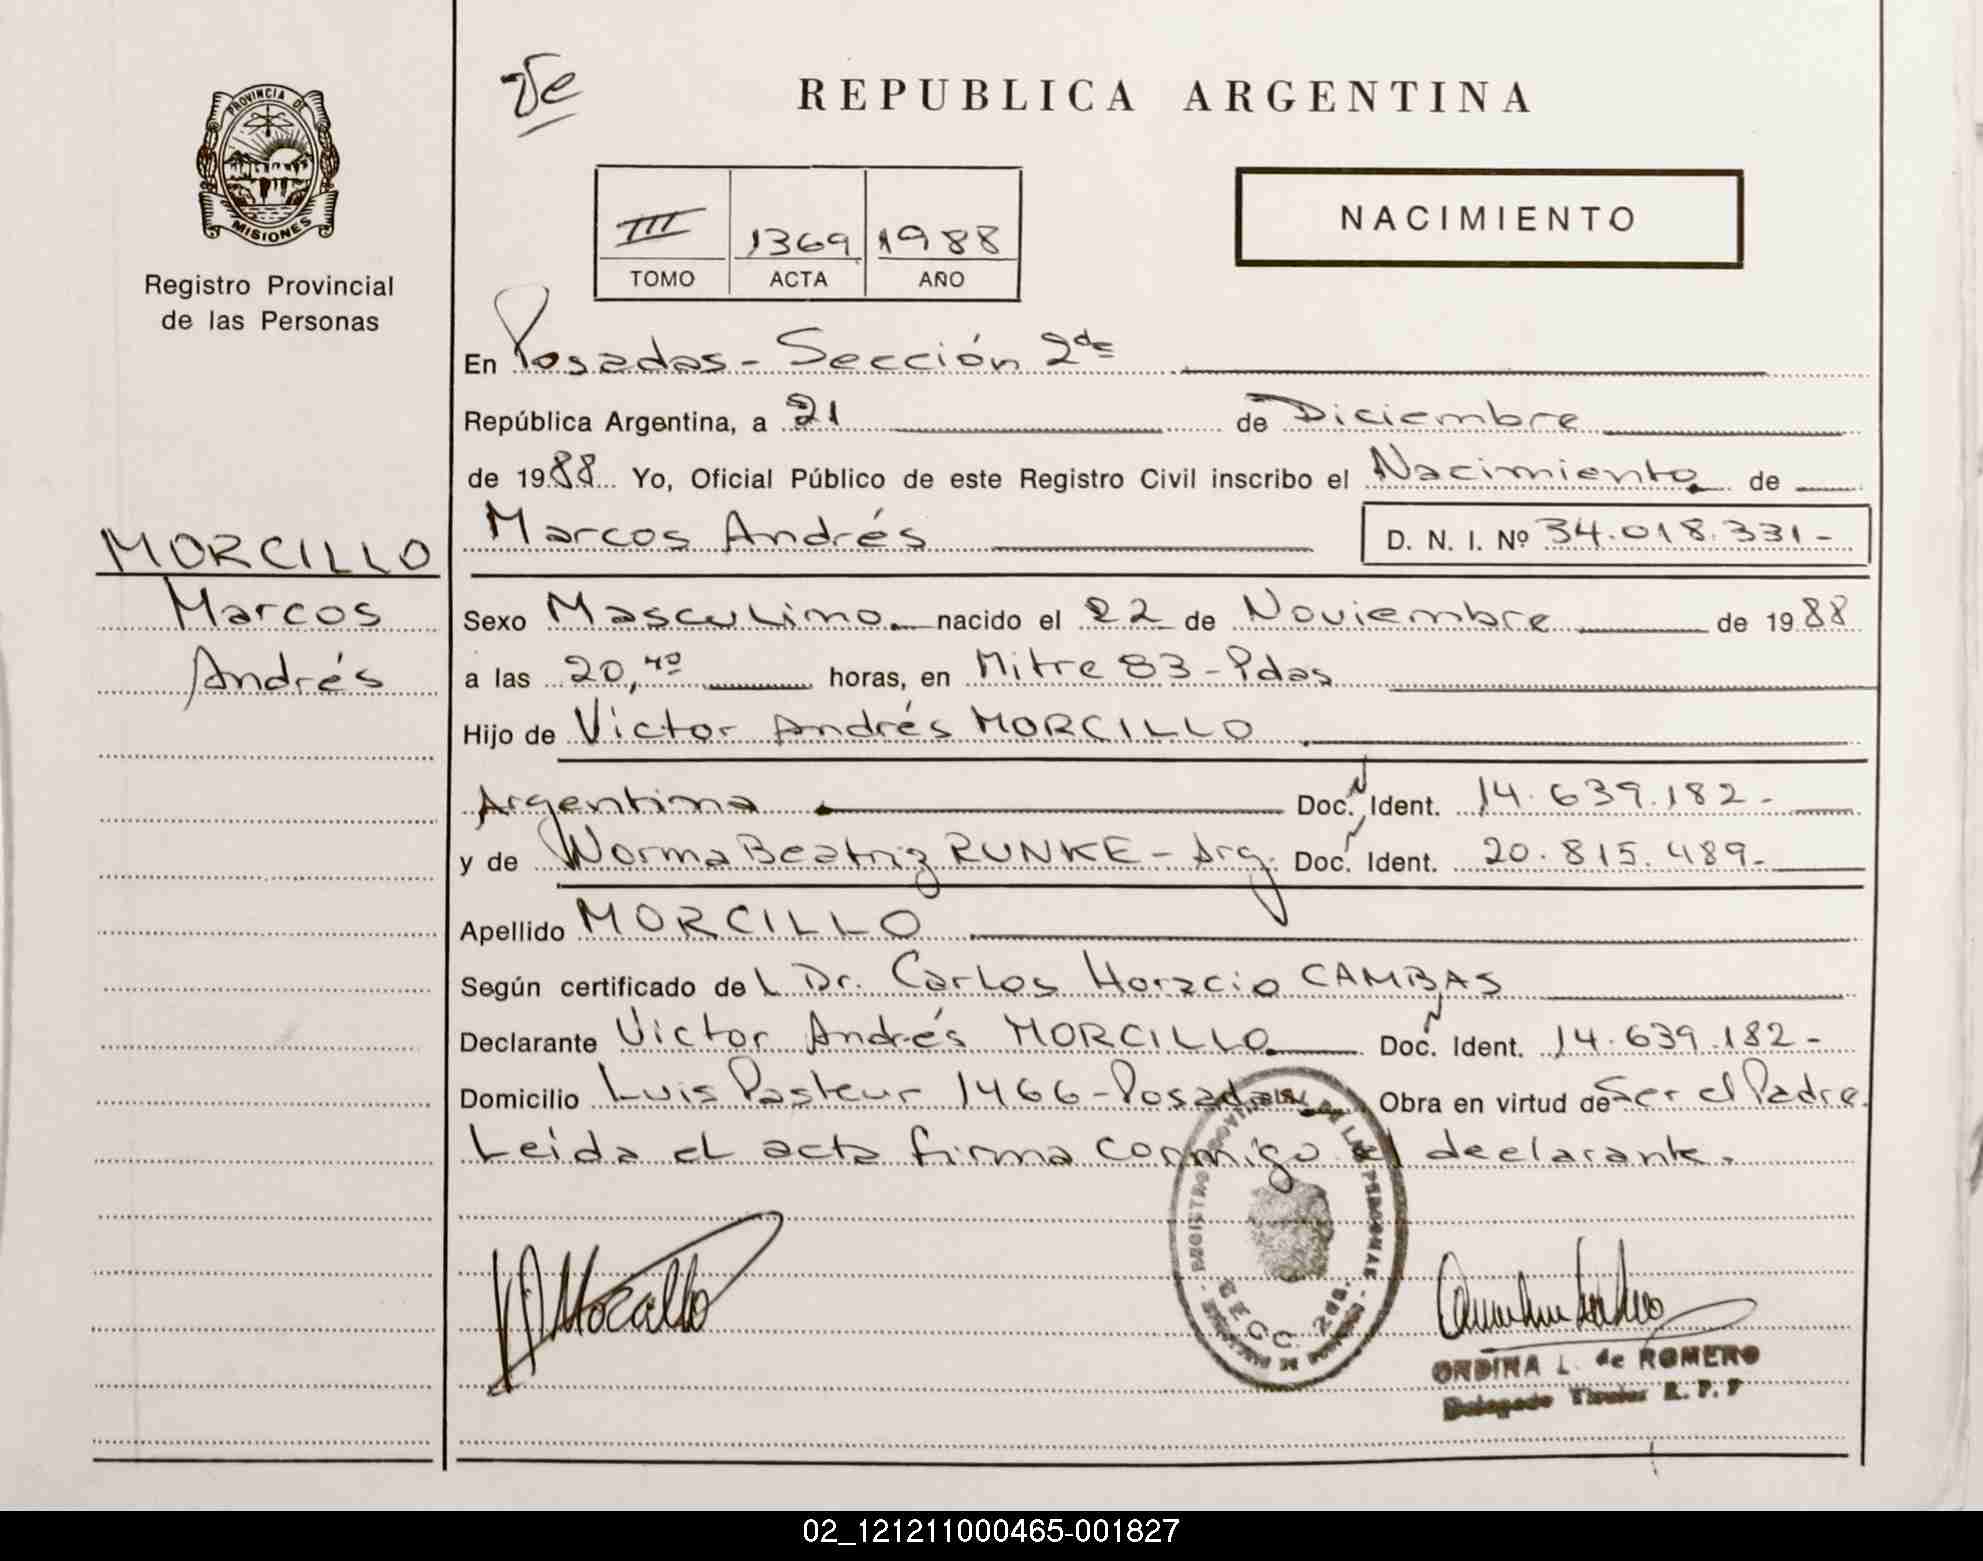 PROVINCIA DE
MISIONES
Registro Provincial
de las Personas
MORCILLO
Marcos
Andrés
REPUBLICA ARGENTINA
III 1369 1988
TOMO ACTA AÑO
NACIMIENTO
En Posadas - Sección 2da
República Argentina, a 21 de Diciembre
de 1988 Yo, Oficial Público de este Registro Civil inscribo el Nacimiento de
Marcos Andrés D. N. I. Nº 34.018.331-
Sexo Masculino nacido el 22 de Noviembre de 1988
a las 20,40 horas, en Mitre 83 - Pdas
Hijo de Victor Andrés MORCILLO
Argentina Doc. N Ident. 14.639.182-
y de Norma Beatriz RUNKE - Arg. Doc. Ident. 20.815.489-
Apellido MORCILLO
Según certificado del Dr. Carlos Horacio CAMBAS
Declarante Victor Andrés MORCILLO Doc. Ident. 14.639.182-
Domicilio Luis Pasteur 1466 - Posadas Obra en virtud de Ser el Padre.
Leida el acta firma conmigo el declarante.
REGISTRO PROVINCIAL DE LAS PERSONAS
SECC. 2da.
Morcillo
ORDINA L. de ROMERO
Delegado Titular R. P. P
02_121211000465-001827